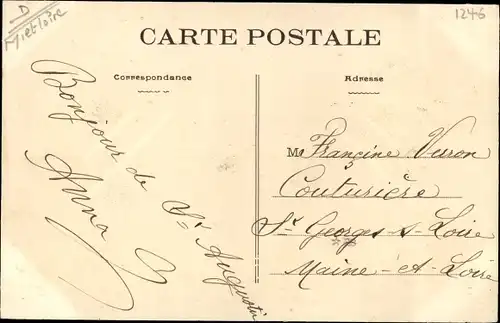 D
M et Loire
1246
CARTE POSTALE
Correspondance
Adresse
Bonjour de St Augustin
Anna
M Francine Veron
Couturière
St Georges-s-Loire
Maine-et-Loire